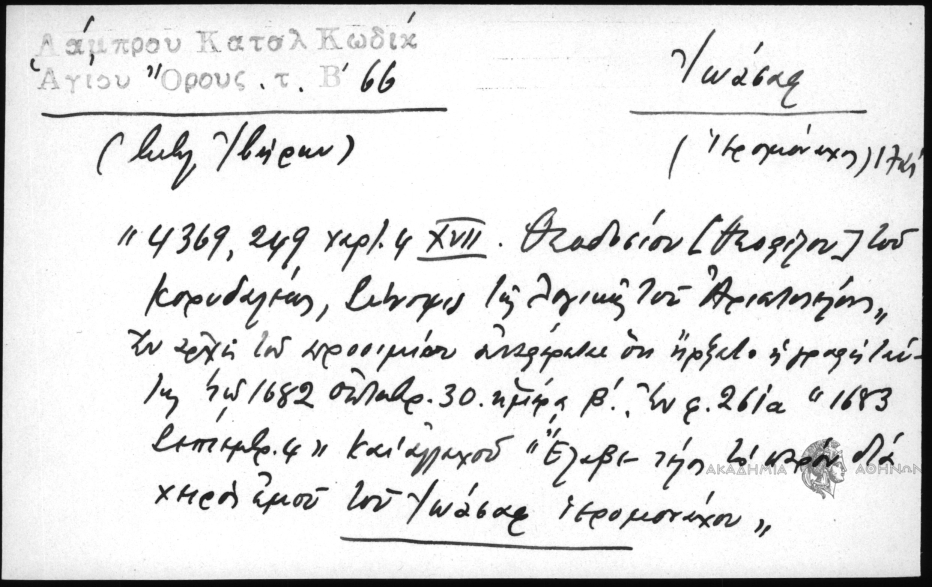 Λάμπρου Καταλ Κωδίκ
Ἁγίου Ὄρους . τ. Β' 66
Ἰωάσαφ
(Ἰβήρων)
(ἱερομόναχος) 17
"4369, 249 χαρτ. 4 XVII. Θεοδοσίου [Θεοφίλου] τοῦ
Κορυδαλέως, Σύνοψις τῆς λογικῆς τοῦ Ἀριστοτέλους"
Ἐν ἀρχῇ τοῦ προοιμίου ὅτι ἤρξατο ἡ γραφὴ ταύ-
της τῷ 1682 ὀκτωβρ. 30. ἡμέρᾳ β'. Ἐν φ. 261α "1683
Σεπτεμβρ. 4" καὶ ἀλλαχοῦ "Ἔλαβε τέλος τὸ παρὸν διὰ
χειρὸς ἐμοῦ τοῦ Ἰωάσαφ ἱερομονάχου"
ΑΚΑΔΗΜΙΑ ΑΘΗΝΩΝ